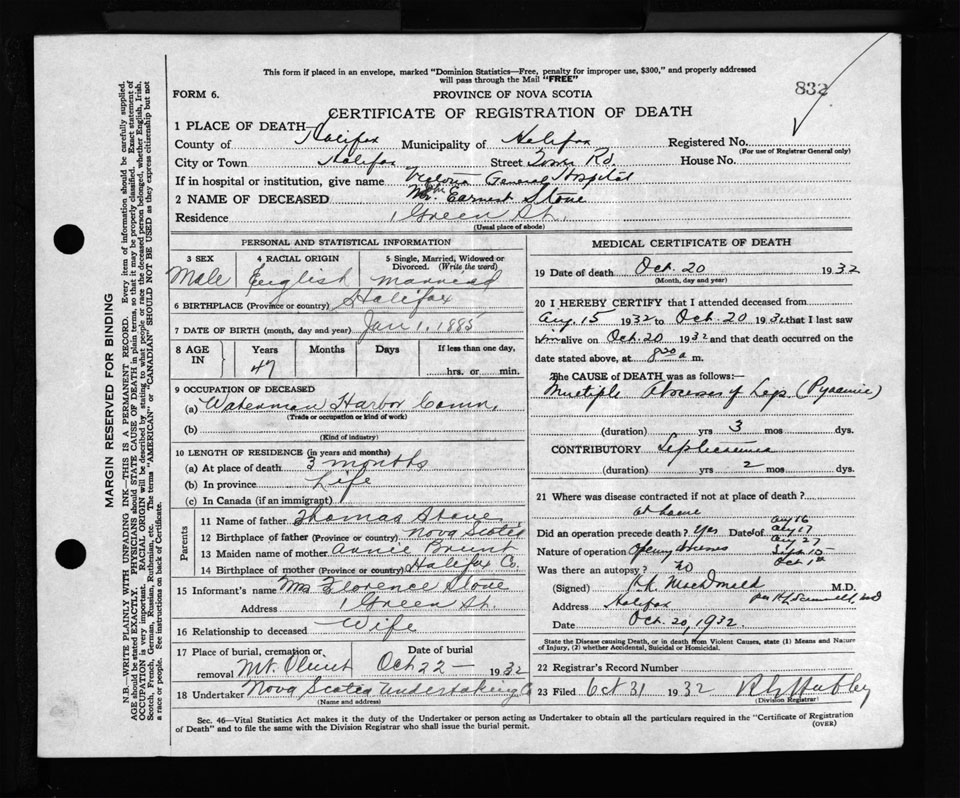 This form if placed in an envelope, marked "Dominion Statistics—Free, penalty for improper use, $300," and properly addressed
will pass through the Mail "FREE"
832
FORM 6.
PROVINCE OF NOVA SCOTIA
CERTIFICATE OF REGISTRATION OF DEATH
1 PLACE OF DEATH—
County of Halifax Municipality of Halifax Registered No.
(For use of Registrar General only)
City or Town Halifax Street Tower Rd. House No.
If in hospital or institution, give name Victoria General Hospital
2 NAME OF DECEASED Mr. Earnest Stone
Residence 1 Green St.
(Usual place of abode)
PERSONAL AND STATISTICAL INFORMATION
3 SEX 4 RACIAL ORIGIN 5 Single, Married, Widowed or Divorced. (Write the word)
Male English Married
6 BIRTHPLACE (Province or country) Halifax
7 DATE OF BIRTH (month, day and year) Jan 1, 1885
8 AGE IN Years Months Days If less than one day,
47 hrs. or min.
9 OCCUPATION OF DECEASED
(a) Waterman Harbor Comm.
(Trade or occupation or kind of work)
(b)
(Kind of industry)
10 LENGTH OF RESIDENCE (in years and months)
(a) At place of death 3 months
(b) In province Life
(c) In Canada (if an immigrant)
Parents
11 Name of father Thomas Stone
12 Birthplace of father (Province or country) Nova Scotia
13 Maiden name of mother Annie Brunt
14 Birthplace of mother (Province or country) Halifax Co.
15 Informant's name Mrs Florence Stone
Address 1 Green St.
16 Relationship to deceased Wife
17 Place of burial, cremation or removal Date of burial
Mt. Olivet Oct 22 — 1932
18 Undertaker Nova Scotia Undertaking Co
(Name and address)
MEDICAL CERTIFICATE OF DEATH
19 Date of death Oct. 20 1932
(Month, day and year)
20 I HEREBY CERTIFY that I attended deceased from
Aug. 15 1932 to Oct. 20 1932 that I last saw
him alive on Oct. 20 1932 and that death occurred on the
date stated above, at 8 a m.
The CAUSE of DEATH was as follows:—
Multiple Abscesses of Legs (Pyaemic)
(duration) yrs 3 mos dys.
CONTRIBUTORY Septicaemia
(duration) yrs 2 mos dys.
21 Where was disease contracted if not at place of death?
at home
Did an operation precede death? Yes Date of Aug 16
Aug 17
Aug 27
Nature of operation Opening Abscesses Sept 10
Oct 1st
Was there an autopsy? no
(Signed) MacDonald M.D.
Address Halifax
Date Oct. 20, 1932
State the Disease causing Death, or in death from Violent Causes, state (1) Means and Nature
of Injury, (2) whether Accidental, Suicidal or Homicidal.
22 Registrar's Record Number
23 Filed Oct 31 1932
(Division Registrar)
Sec. 46—Vital Statistics Act makes it the duty of the Undertaker or person acting as Undertaker to obtain all the particulars required in the "Certificate of Registration
of Death" and to file the same with the Division Registrar who shall issue the burial permit.
(OVER)
MARGIN RESERVED FOR BINDING
N.B.—WRITE PLAINLY WITH UNFADING INK—THIS IS A PERMANENT RECORD. Every item of information should be carefully supplied.
AGE should be stated EXACTLY. PHYSICIANS should STATE CAUSE OF DEATH in plain terms, so that it may be properly classified. Exact statement of
OCCUPATION is very important. RACIAL ORIGIN will be described by stating to what people or race the deceased person belonged, whether English, Irish,
Scotch, French, German, Russian, Ruthenian, etc. The terms "AMERICAN" or "CANADIAN" SHOULD NOT BE USED as they express citizenship but not
a race or people. See instructions on back of Certificate.